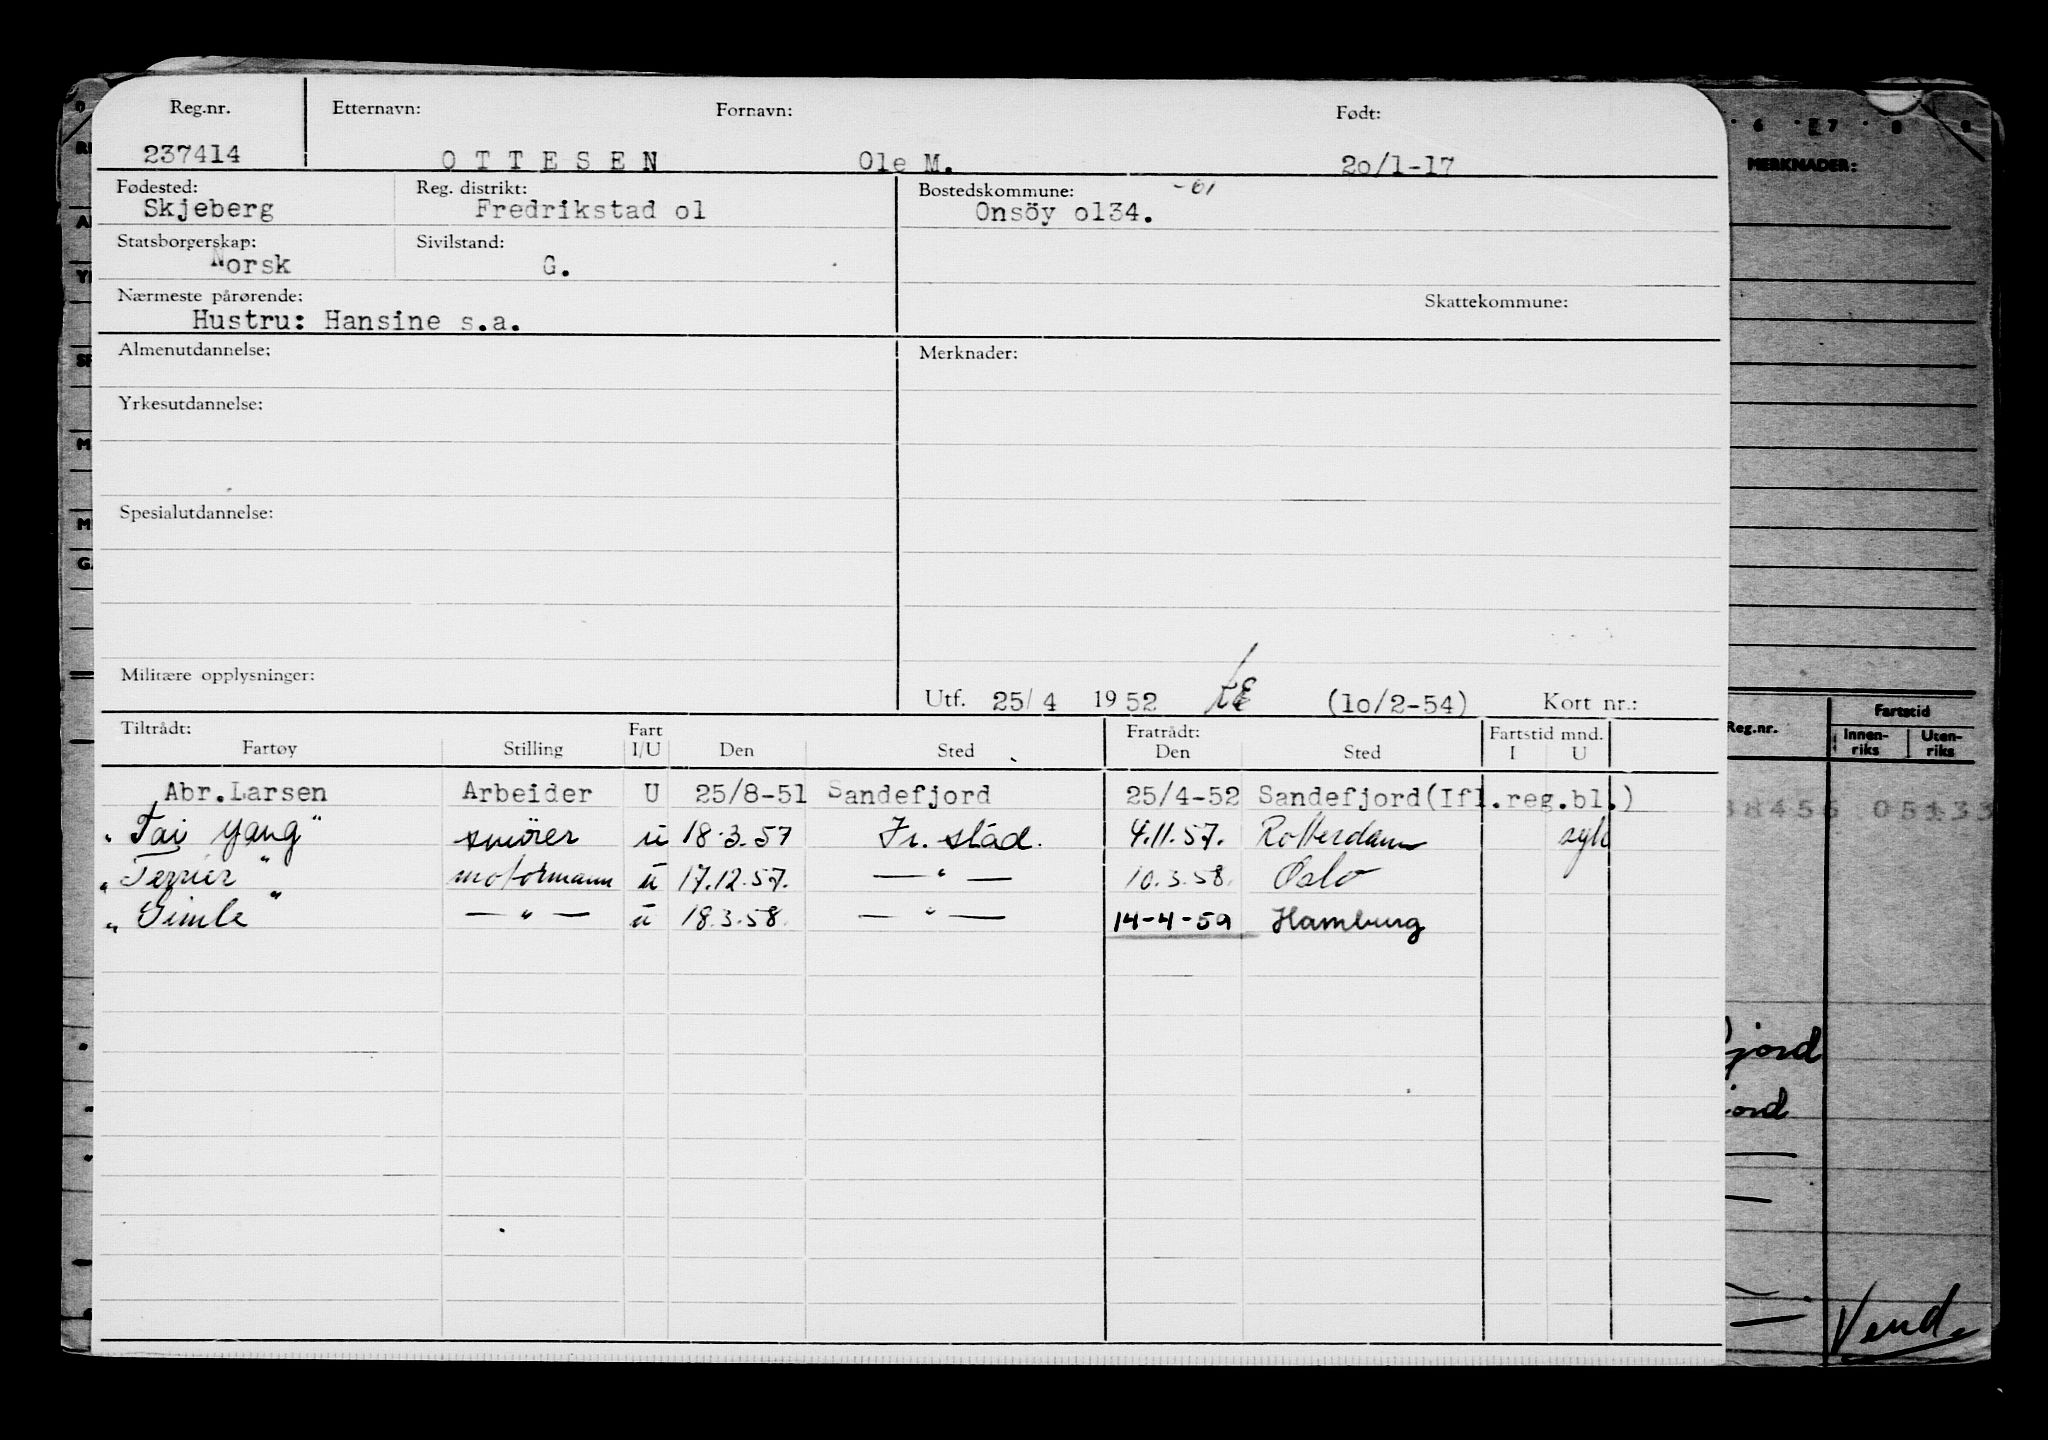 Reg.nr. Etternavn: Fornavn: Født:
237414 O T T E S E N Ole M. 20/1-17
Fødested: Reg. distrikt: Bostedskommune: -61
Skjeberg Fredrikstad o1 Onsöy o134.
Statsborgerskap: Sivilstand:
Norsk G.
Nærmeste pårørende: Skattekommune:
Hustru: Hansine s.a.
Almenutdannelse: Merknader:
Yrkesutdannelse:
Spesialutdannelse:
Militære opplysninger:
Utf. 25/4 1952 (1o/2-54) Kort nr.:
Tiltrådt: Fart Fratrådt: Fartstid mnd.
Fartøy Stilling I/U Den Sted Den Sted I U
Abr.Larsen Arbeider U 25/8-51 Sandefjord 25/4-52 Sandefjord(Ifl.reg.bl.)
"Tai Yang" smörer u 18.3.57 Fr.stad. 4.11.57. Rotterdam syk
"Terrier" motormann u 17.12.57. — " — 10.3.58. Oslo
"Gimle" — " — u 18.3.58. — " — 14-4-59 Hamburg
6 7 8 9
MERKNADER:
Reg.nr. Fartstid
Innen-riks Uten-riks
38456 05133
fjord
jord
Vend.